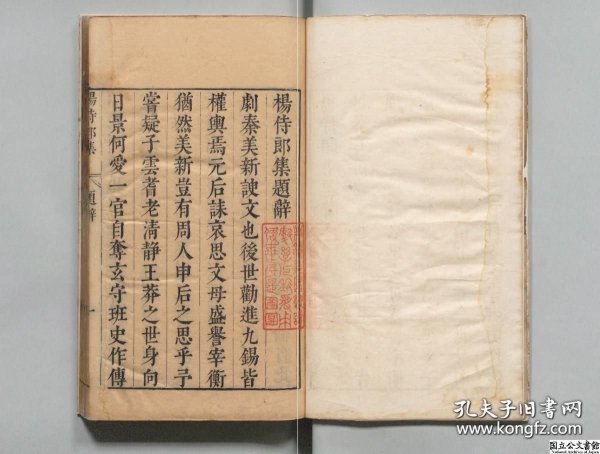 楊侍郎集題辭
劇秦美新諛文也後世勸進九錫皆
權輿焉元后誄哀思文母盛譽宰衡
猶然美新豈有周人申后之思乎予
嘗疑子雲耆老清靜王莽之世身向
日景何愛一官自奪玄守班史作傳
楊侍郎集 題辭 一
孔夫子旧书网
www.kongfz.com
国立公文書館
National Archives of Japan